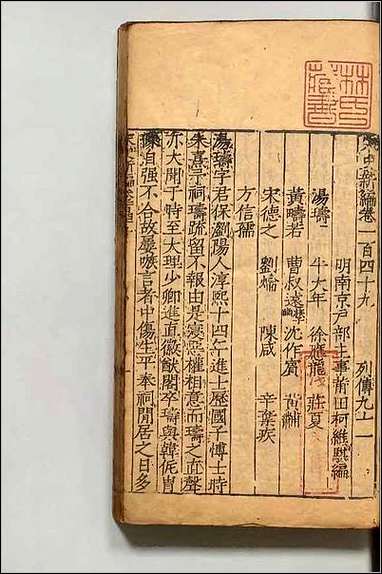 宋史新編卷一百四十九　列傳九十一
明南京戶部主事莆田柯維騏編
湯璹　牛大年　徐應龍　莊夏
黃疇若　曹叔遠　沈作賓
宋德之　劉爚　陳咸　辛棄疾
方信孺
湯璹字君保劉陽人淳熙十四年進士歷國子博士時
朱熹予祠璹疏留不報由是寖忤權相意而璹之直聲
亦大聞于時至大理少卿進直徽猷閣卒璹與韓侂胄
自强不合故屢嗾言者中傷生平奉祠閒居之日多
林氏藏書